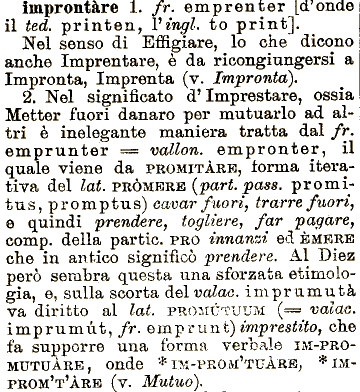 improntàre 1. fr. emprenter [d'onde
il ted. printen, l'ingl. to print].
Nel senso di Effigiare, lo che dicono
anche Imprentare, è da ricongiungersi a
Impronta, Imprenta (v. Impronta).
2. Nel significato d'Imprestare, ossia
Metter fuori danaro per mutuarlo ad al-
tri è inelegante maniera tratta dal fr.
emprunter = vallon. empronter, il
quale viene da PROMITÀRE, forma itera-
tiva del lat. PRÒMERE (part. pass. promi-
tus, promptus) cavar fuori, trarre fuori,
e quindi prendere, togliere, far pagare,
comp. della partic. PRO innanzi ed ÈMERE
che in antico significò prendere. Al Diez
però sembra questa una sforzata etimolo-
gia, e, sulla scorta del valac. imprumutà
va diritto al lat. PROMÚTUUM (= valac.
imprumút, fr. emprunt) imprestito, che
fa supporre una forma verbale IM-PRO-
MUTUÀRE, onde *IM-PROM'TUÀRE, *IM-
PROM'T'ÀRE (v. Mutuo).